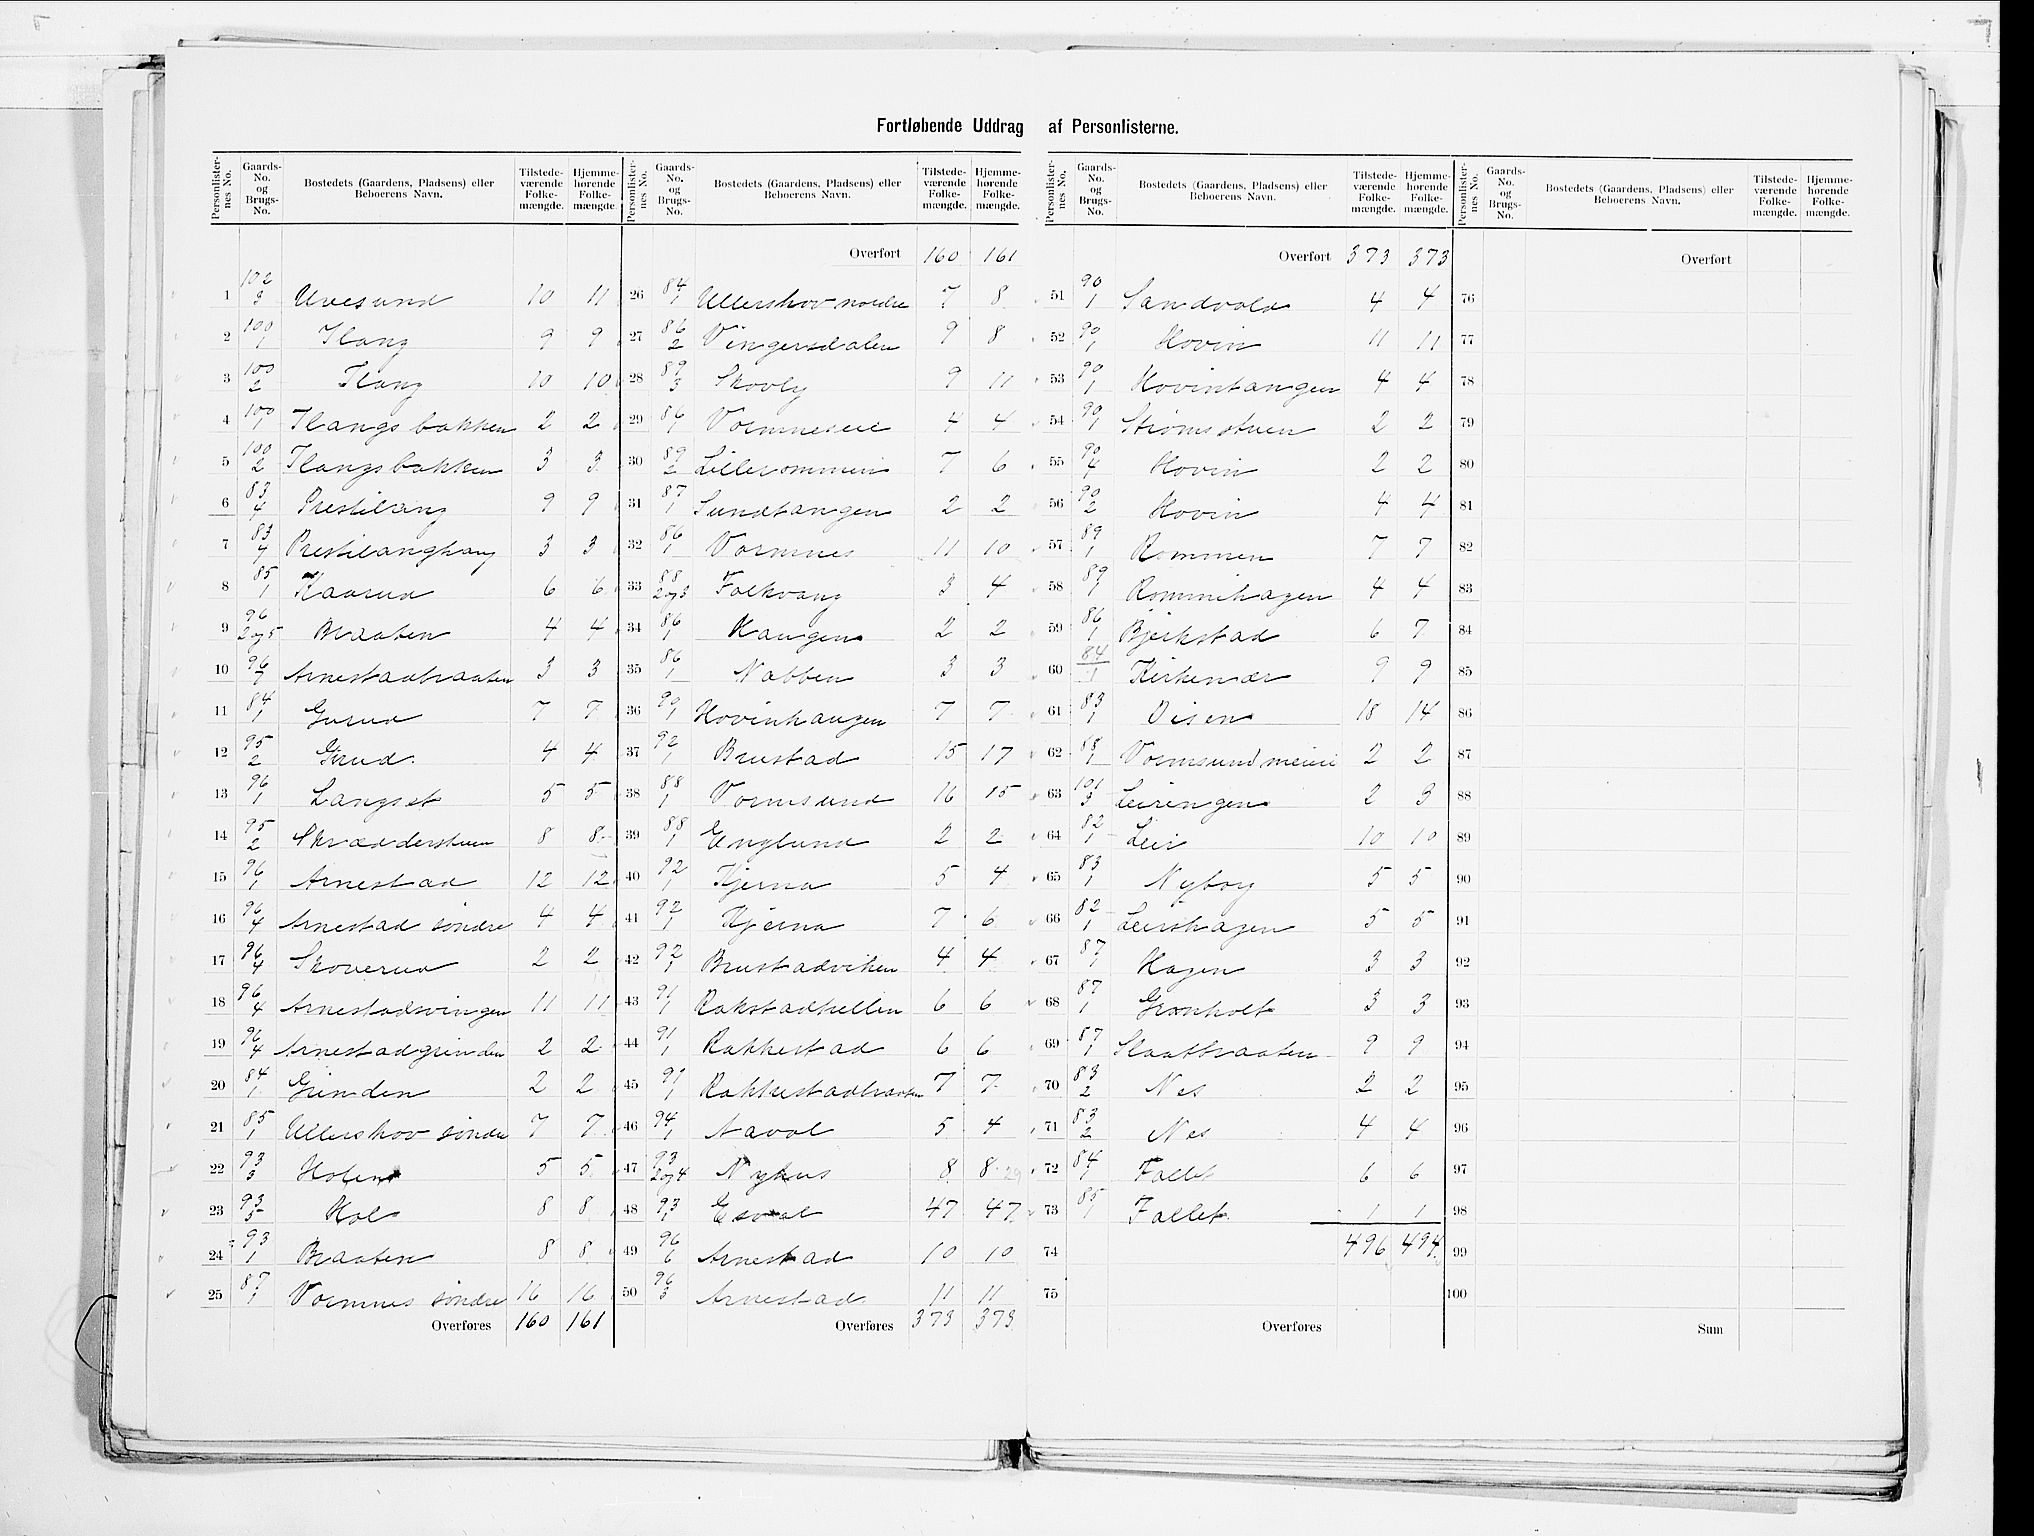 Fortløbende Uddrag af Personlisterne.
Personlister-nes No. | Gaards-No. og Brugs-No. | Bostedets (Gaardens, Pladsens) eller Beboerens Navn. | Tilstede-værende Folke-mængde. | Hjemme-hørende Folke-mængde.
1 102/3 Uvesund 10 11
2 100/1 Ilang 9 9
3 100/2 Ilang 10 10
4 100/1 Ilangsbakken 2 2
5 100/2 Ilangsbakken 3 3
6 83/4 Prestilang 9 9
7 83/4 Prestilanghaug 3 3
8 85/1 Kaarud 6 6
9 96/2og5 Braaten 4 4
10 96/7 Arnestadbraaten 3 3
11 84/1 Gurud 7 7
12 95/2 Grud. 4 4
13 96/1 Langset 5 5
14 95/2 Skrædderstuen 8 8
15 96/1 Arnestad 12 12
16 96/4 Arnestad søndre 4 4
17 96/4 Skoverud 2 2
18 96/4 Arnestadsvingen 11 11
19 96/4 Arnestadgrinden 2 2
20 84/1 Grinden 2 2
21 85/1 Ullershov søndre 7 7
22 93/3 Holen 5 5
23 93/5 Hol 8 8
24 93/1 Braaten 8 8
25 87/1 Vormnes søndre 16 16
Overføres 160 161
Personlister-nes No. | Gaards-No. og Brugs-No. | Bostedets (Gaardens, Pladsens) eller Beboerens Navn. | Tilstede-værende Folke-mængde. | Hjemme-hørende Folke-mængde.
Overført 160 161
26 84/1 Ullershov nordre 7 8
27 86/2 Vingersdalen 9 8
28 89/3 Skovly 9 11
29 86/1 Vormneseie 4 4
30 89/2 Lillerommen 7 6
31 87/1 Sundtangen 2 2
32 86/1 Vormnes 11 10
33 88/2og3 Folkvang 3 4
34 86/1 Haugen 2 2
35 86/1 Nabben 3 3
36 90/1 Hovinhaugen 7 7
37 92/1 Brustad 15 17
38 88/1 Vormsund 16 15
39 88/1 Englund 2 2
40 92/1 Hjerna 5 4
41 92/1 Hjerna 7 6
42 92/1 Brustadviken 4 4
43 91/1 Rakstadhellen 6 6
44 91/1 Rakkestad 6 6
45 91/1 Rakkestadbraaten 7 7
46 94/1 Aavol 5 4
47 93/2og4 Nyhus 8 8 29
48 93/1 Esval 47 47
49 96/6 Arnestad 10 10
50 96/3 Arnestad 11 11
Overføres 373 373
Personlister-nes No. | Gaards-No. og Brugs-No. | Bostedets (Gaardens, Pladsens) eller Beboerens Navn. | Tilstede-værende Folke-mængde. | Hjemme-hørende Folke-mængde.
Overført 373 373
51 90/1 Sandvold 4 4
52 90/1 Hovin 11 11
53 90/1 Hovintangen 4 4
54 90/1 Strømsstuen 2 2
55 90/4 Hovin 2 2
56 90/2 Hovin 4 4
57 89/1 Rommen 7 7
58 89/1 Rommihagen 4 4
59 86/1 Bjerkstad 6 7
60 84/1 Kirkenær 9 9
61 83/1 Disen 18 14
62 88/1 Vormsund meieri 2 2
63 101/3 Leiringen 2 3
64 82/1 Leir 10 10
65 83/1 Nyborg 5 5
66 82/1 Leirshagen 5 5
67 87/1 Hagen 3 3
68 87/1 Grønholt 3 3
69 87/1 Slaatbraaten 9 9
70 83/2 Nes 2 2
71 83/2 Nes 4 4
72 84/1 Fallet 6 6
73 85/1 Fallet 1 1
74 496 494
75
Overføres
Personlister-nes No. | Gaards-No. og Brugs-No. | Bostedets (Gaardens, Pladsens) eller Beboerens Navn. | Tilstede-værende Folke-mængde. | Hjemme-hørende Folke-mængde.
Overført
76
77
78
79
80
81
82
83
84
85
86
87
88
89
90
91
92
93
94
95
96
97
98
99
100
Sum